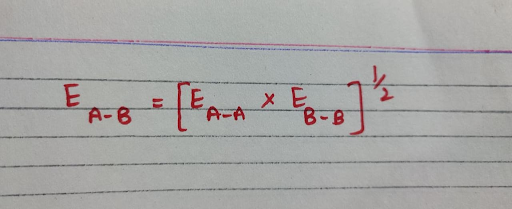 E_{A-B} = [E_{A-A} × E_{B-B}]^{1/2}